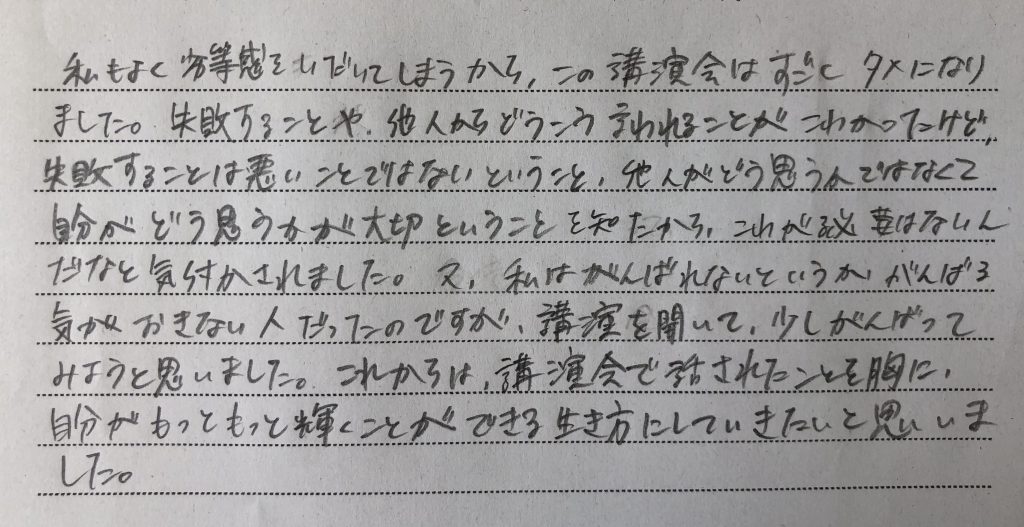 私もよく劣等感をいだいてしまうから、この講演会はすごく タメになり
ました。失敗することや、他人からどうこう言われることが こわかったけど、
失敗することは悪いことではないということ、他人がどう思うかではなくて
自分がどう思うかが大切ということを知たから、これが必要はないん
だなと気付かされました。又、私はがんばれないというか がんばる
気がおきない人だったのですが、講演を聞いて、少しがんばって
みようと思いました。これからは、講演会で話されたことを胸に、
自分がもっともっと輝くことができる生き方にしていきたいと思いま
した。